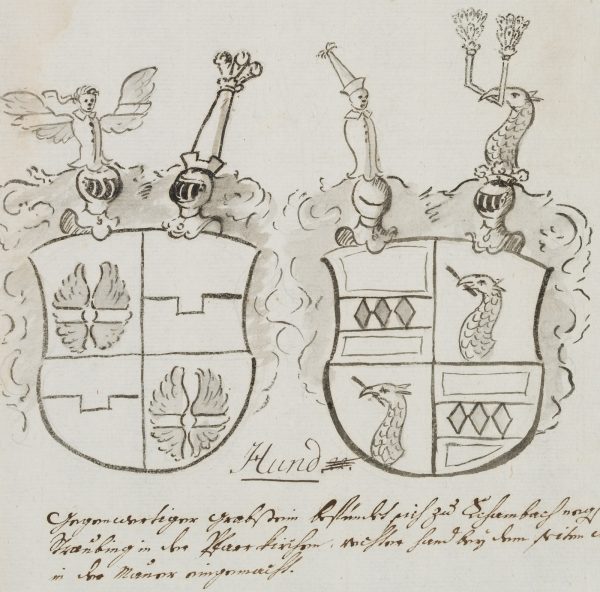 Hund
Gegenwertiger Grabstein befindet sich zu Schambach negst
Straubing in der Pfarrkirchen, rechter hand bey dem seiten
in der Mauer eingemacht.